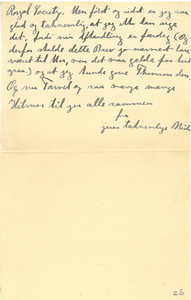 Royal Society. Men først og sidst er jeg saa
glad og taknemlig, at jeg kan sige
det, fordi min Afhandling er færdig (Og
derfor skulde dette Brev jo nærmest have
været til Mor, men det maa gælde for hele
) og at jeg kunde gøre Thomson den.
Og nu Farvel og saa mange mange
Hilsner til jer alle sammen
fra
jeres taknemlige
26